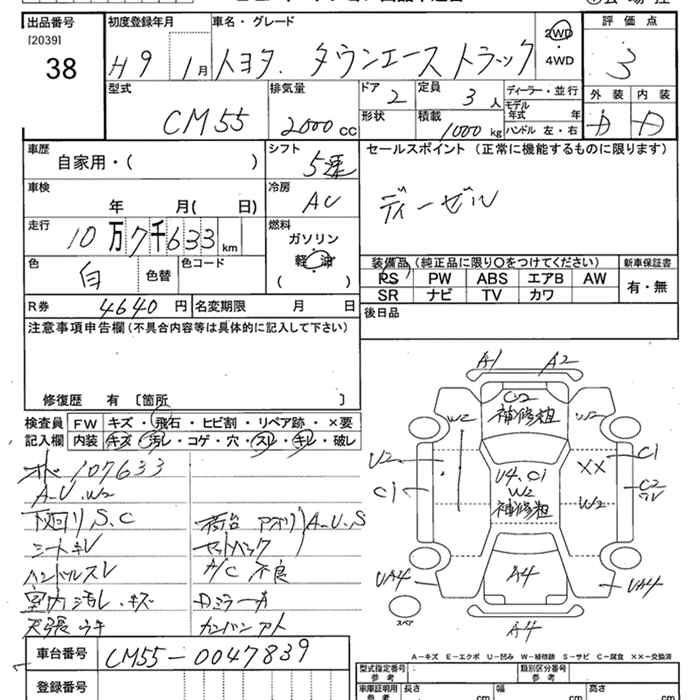 出品番号 初度登録年月 車名・グレード 評価点
[2039]
38 H9 1月 トヨタ. タウンエーストラック 2WD
・
4WD 3
型式 排気量 ドア 定員 ディーラー・並行 外装 内装
CM55 2000 CC 2 3人 モデル年式 年
形状 積載 1000 kg ハンドル 左・右 D D
車歴 シフト セールスポイント(正常に機能するものに限ります)
自家用・( ) 5速
車検 冷房 ディーゼル
年 月( 日) AC
走行 燃料
10万7千633km ガソリン
色 色替 色コード 軽・油 装備品(純正品に限り○をつけてください) 新車保証書
白 ( ) PS PW ABS エアB AW 有・無
SR ナビ TV カワ
R券 4640円 名変期限 月 日 後日品
注意事項申告欄(不具合内容等は具体的に記入して下さい)
修復歴 有 〔箇所 〕
検査員 FW キズ・飛石・ヒビ割・リペア跡・×要
記入欄 内装 キズ・汚レ・コゲ・穴・スレ・キレ・破レ
107633
A-U.W2
下回リS.C 荷台 アオリA-U.S
シートキレ セットバック
ハンドルスレ A/C不良
室内汚レ.キズ Dミラーカ
天張ウキ カンバンアト
車台番号 CM55-0047839
登録番号
A1 A2
C2
補修粗
W2 W2
U2 C1
C1 ×× C2
U4.C1
W2
補修粗
W2
UA4 A4 UA4
スペア A4
A-キズ E-エクボ U-凹み W-補修跡 S-サビ C-腐食 ××-交換済
型式指定番号 参考 類別区分番号 参考
車庫証明用 参考 長さ cm 幅 cm 高さ cm